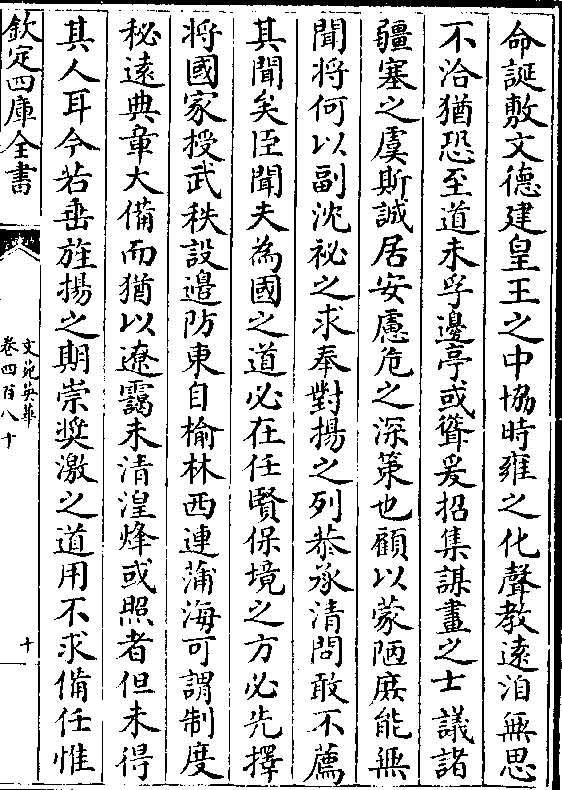 命誕敷文德建皇王之中協時雍之化聲教遠洎無思
不洽猶恐至道未孚邊亭或聳爰招集謀畫之士議諸
疆塞之虞斯誠居安慮危之深策也顧以蒙陋庶能無
聞將何以副沈祕之求奉對揚之列恭承清問敢不薦
其聞矣臣聞夫為國之道必在任賢保境之方必先擇
將國家授武秩設邉防東自榆林西連蒲海可謂制度
秘遠典章大備而猶以遼靄未清湟烽或照者但未得
其人耳今若垂旌揚之期崇奬激之道用不求備任惟
欽定四庫全書
文苑英華
卷四百八十
十